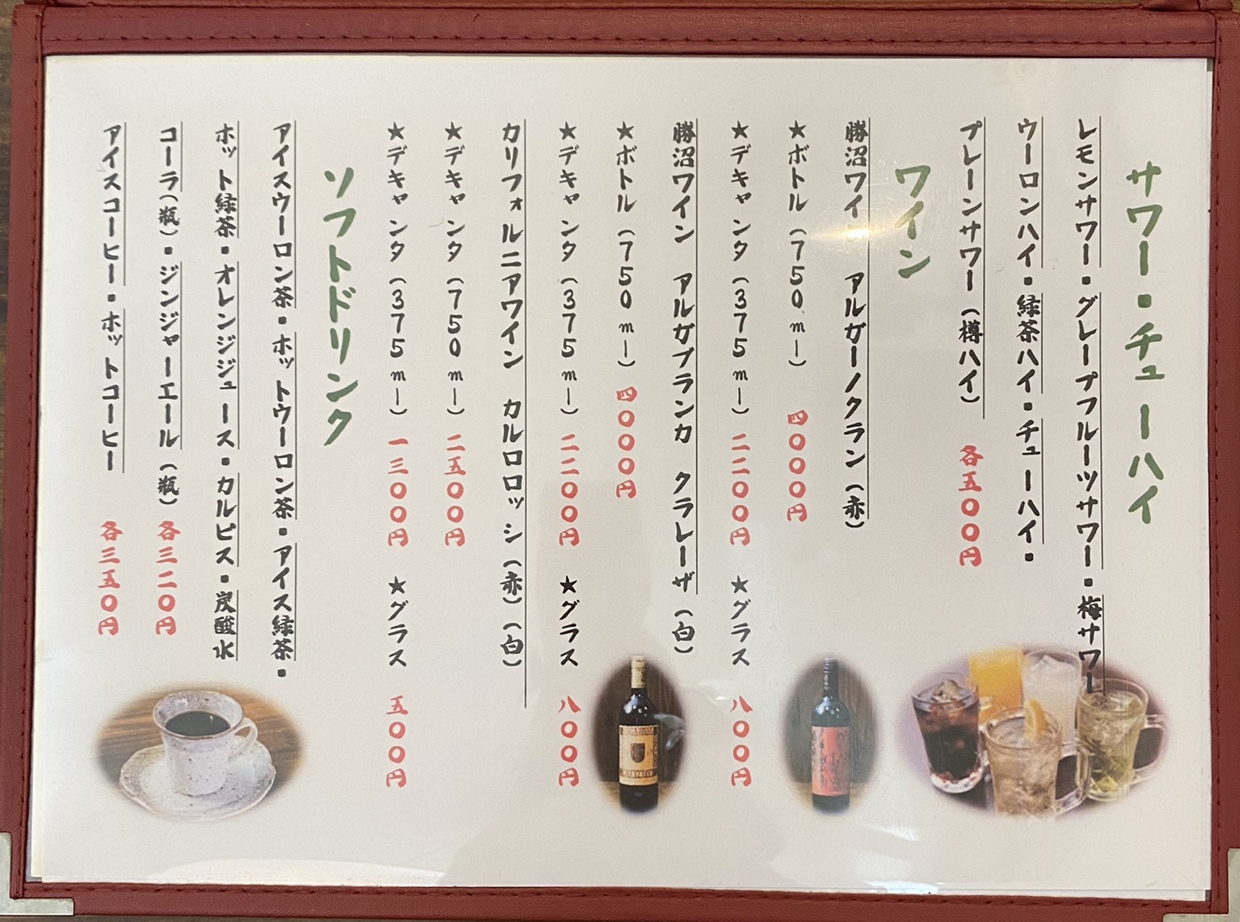 サワー・チューハイ
レモンサワー・グレープフルーツサワー・梅サワー
ウーロンハイ・緑茶ハイ・チューハイ・
プレーンサワー(樽ハイ) 各五〇〇円
ワイン
勝沼ワイン アルガーノクラン(赤)
★ボトル(750ml) 四〇〇〇円
★デキャンタ(375ml) 二二〇〇円 ★グラス 八〇〇円
勝沼ワイン アルガブランカ クラレーザ(白)
★ボトル(750ml) 四〇〇〇円
★デキャンタ(375ml) 二二〇〇円 ★グラス 八〇〇円
カリフォルニアワイン カルロロッシ(赤)(白)
★デキャンタ(750ml) 二五〇〇円
★デキャンタ(375ml) 一三〇〇円 ★グラス 五〇〇円
ソフトドリンク
アイスウーロン茶・ホットウーロン茶・アイス緑茶・
ホット緑茶・オレンジジュース・カルピス・炭酸水
コーラ(瓶)・ジンジャーエール(瓶) 各三二〇円
アイスコーヒー・ホットコーヒー 各三五〇円